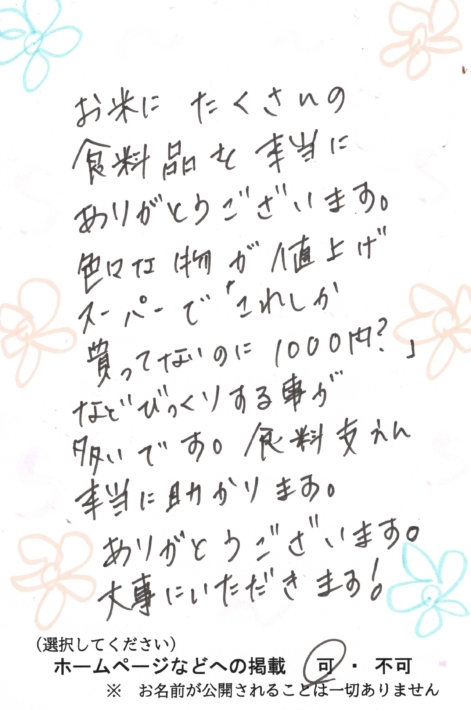 お米に たくさんの
食料品を 本当に
ありがとうございます。
色々な物が値上げ
スーパーで「これしか
買ってないのに1000円?」
などびっくりする事が
多いです。食料支えん
本当に助かります。
ありがとうございます。
大事にいただきます!
（選択してください）
ホームページなどへの掲載 可 ・ 不可
※ お名前が公開されることは一切ありません